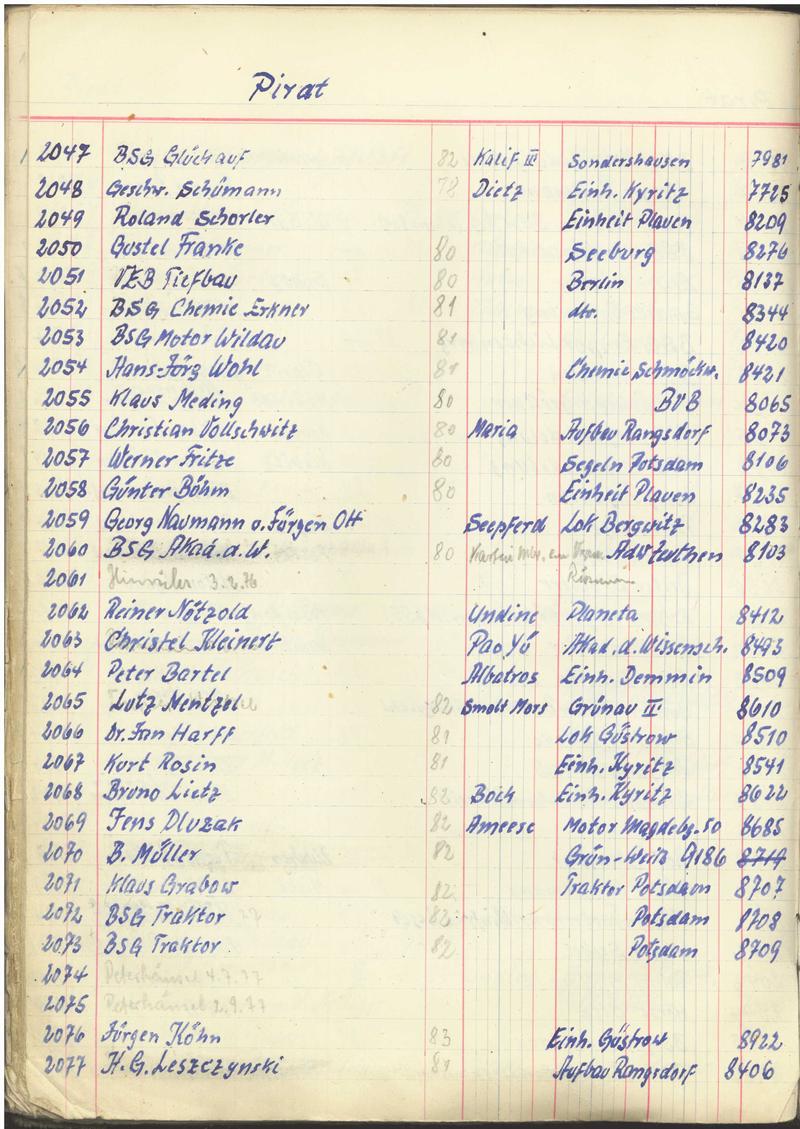 Pirat
2047 BSG Glückauf 82 Kalif III Sondershausen 7981
2048 Geschw. Schümann 78 Dietz Einh. Kyritz 7725
2049 Roland Schorler Einheit Plauen 8209
2050 Gustel Franke 80 Seeburg 8276
2051 VEB Tiefbau 80 Berlin 8137
2052 BSG Chemie Erkner 81 dto. 8344
2053 BSG Motor Wildau 81 8420
2054 Hans-Jörg Wohl 81 Chemie Schmöckw. 8421
2055 Klaus Meding 80 BVB 8065
2056 Christian Vollschwitz 80 Maria Aufbau Rangsdorf 8073
2057 Werner Fritze 80 Segeln Potsdam 8106
2058 Günter Böhm 80 Einheit Plauen 8235
2059 Georg Naumann o. Jürgen Ott Seepferd Lok Bergwitz 8283
2060 BSG Akad. d. W. 80 AdW Zeuthen 8103
2061 3.2.76
2062 Reiner Nötzold Undine Planeta 8412
2063 Christel Kleinert Pao Yü Akad. d. Wissensch. 8493
2064 Peter Bartel Albatros Einh. Demmin 8509
2065 Lutz Mentzel 82 Smolt Mors Grünau III 8610
2066 Dr. Jan Harff 81 Lok Güstrow 8510
2067 Kurt Rosin 81 Einh. Kyritz 8541
2068 Bruno Lietz 82 Boch Einh. Kyritz 8622
2069 Jens Dluzak 82 Ameese Motor Magdebg. SO 8685
2070 B. Müller 82 Grün-Weiß 9186 8719
2071 Klaus Grabow 82 Traktor Potsdam 8707
2072 BSG Traktor 82 Potsdam 8708
2073 BSG Traktor 82 Potsdam 8709
2074 Peterhänsel 4.7.77
2075 Peterhänsel 2.9.77
2076 Jürgen Köhn 83 Einh. Güstrow 8922
2077 H. G. Leszczynski 81 Aufbau Rangsdorf 8406